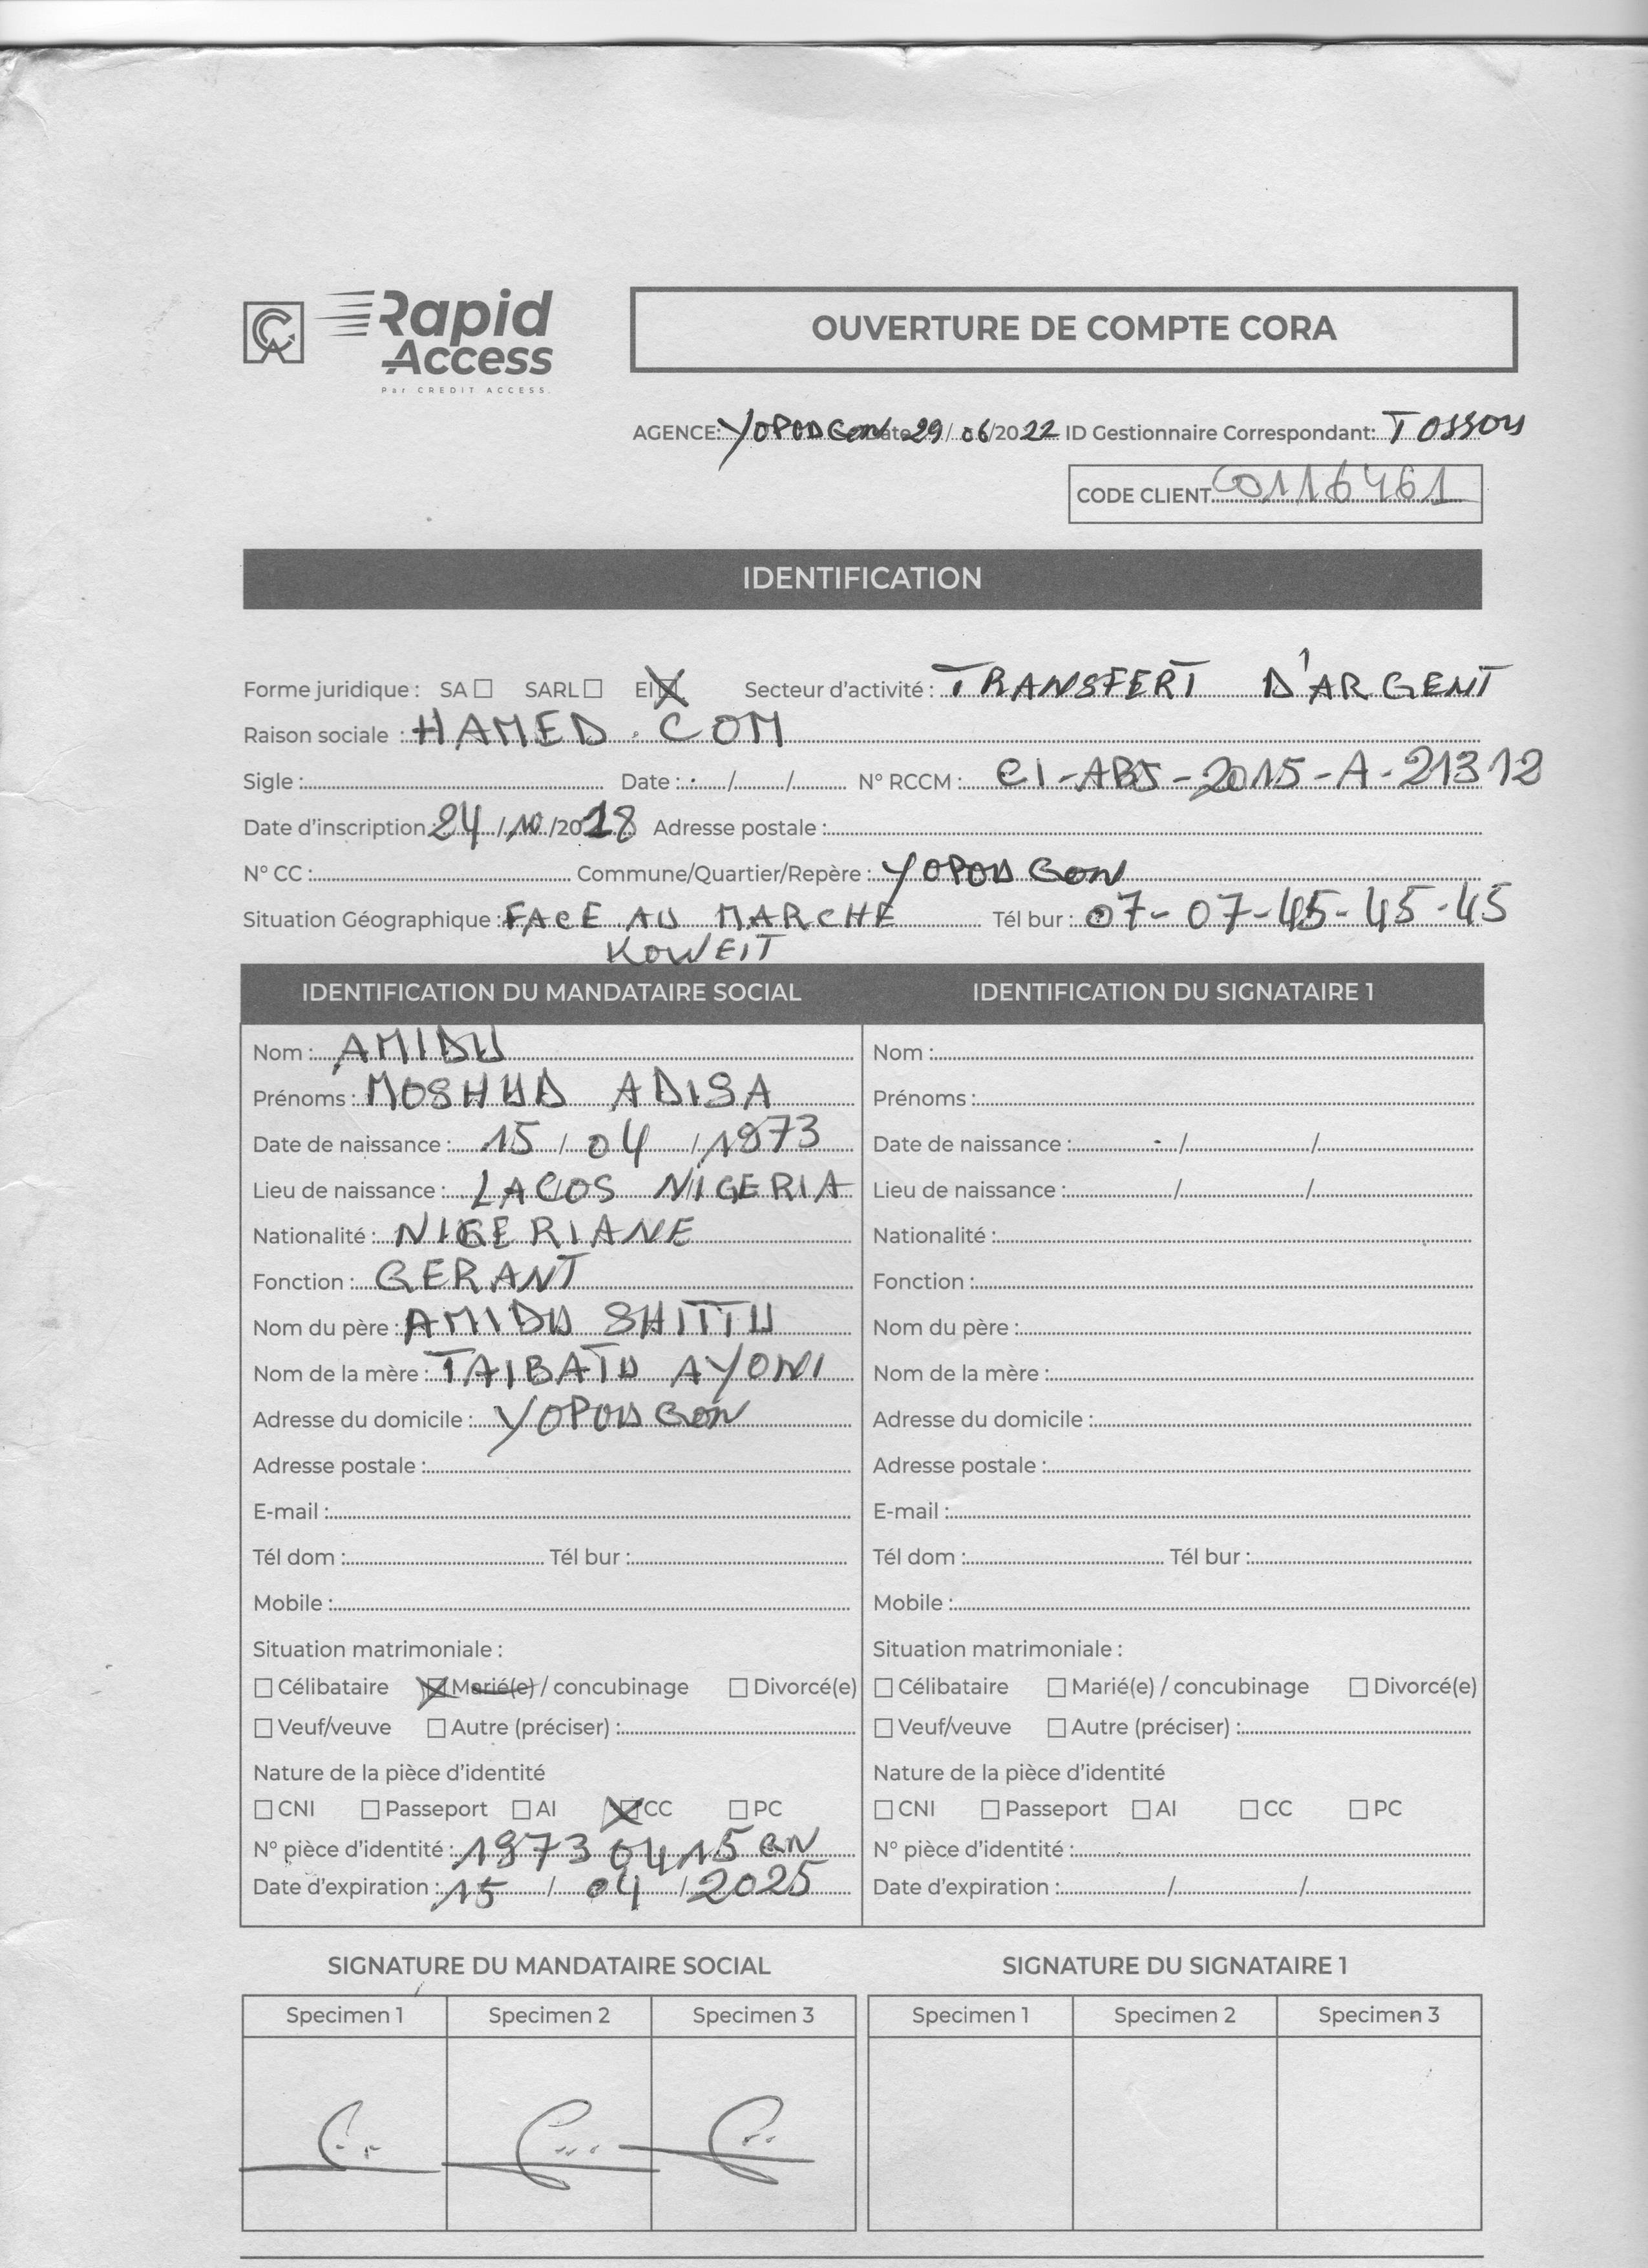 CA Rapid Access
Par CREDIT ACCESS.
OUVERTURE DE COMPTE CORA
AGENCE: YOPOUGON Date 29/06/2022 ID Gestionnaire Correspondant: TOSSOU
CODE CLIENT C0116461
IDENTIFICATION
Forme juridique : SA ☐ SARL ☐ EI ☒ Secteur d'activité : TRANSFERT D'ARGENT
Raison sociale : HAMED. COM
Sigle : Date : / / N° RCCM : CI-ABJ-2015-A-21312
Date d'inscription : 24/10/2018 Adresse postale :
N° CC : Commune/Quartier/Repère : YOPOUGON
Situation Géographique : FACE AU MARCHE Tél bur : 07-07-45-45-45
KOWEIT
IDENTIFICATION DU MANDATAIRE SOCIAL IDENTIFICATION DU SIGNATAIRE 1
Nom : AMIDU Nom :
Prénoms : MOSHUD ADISA Prénoms :
Date de naissance : 15/04/1973 Date de naissance : / /
Lieu de naissance : LAGOS NIGERIA Lieu de naissance : / /
Nationalité : NIGERIANE Nationalité :
Fonction : GERANT Fonction :
Nom du père : AMIDU SHITTU Nom du père :
Nom de la mère : TAIBATU AYONI Nom de la mère :
Adresse du domicile : YOPOUGON Adresse du domicile :
Adresse postale : Adresse postale :
E-mail : E-mail :
Tél dom : Tél bur : Tél dom : Tél bur :
Mobile : Mobile :
Situation matrimoniale : Situation matrimoniale :
☐ Célibataire ☒ Marié(e) / concubinage ☐ Divorcé(e) ☐ Célibataire ☐ Marié(e) / concubinage ☐ Divorcé(e)
☐ Veuf/veuve ☐ Autre (préciser) : ☐ Veuf/veuve ☐ Autre (préciser) :
Nature de la pièce d'identité Nature de la pièce d'identité
☐ CNI ☐ Passeport ☐ AI ☒ CC ☐ PC ☐ CNI ☐ Passeport ☐ AI ☐ CC ☐ PC
N° pièce d'identité : 19730415 N° pièce d'identité :
Date d'expiration : 15/04/2025 Date d'expiration : / /
SIGNATURE DU MANDATAIRE SOCIAL SIGNATURE DU SIGNATAIRE 1
Specimen 1 Specimen 2 Specimen 3 Specimen 1 Specimen 2 Specimen 3